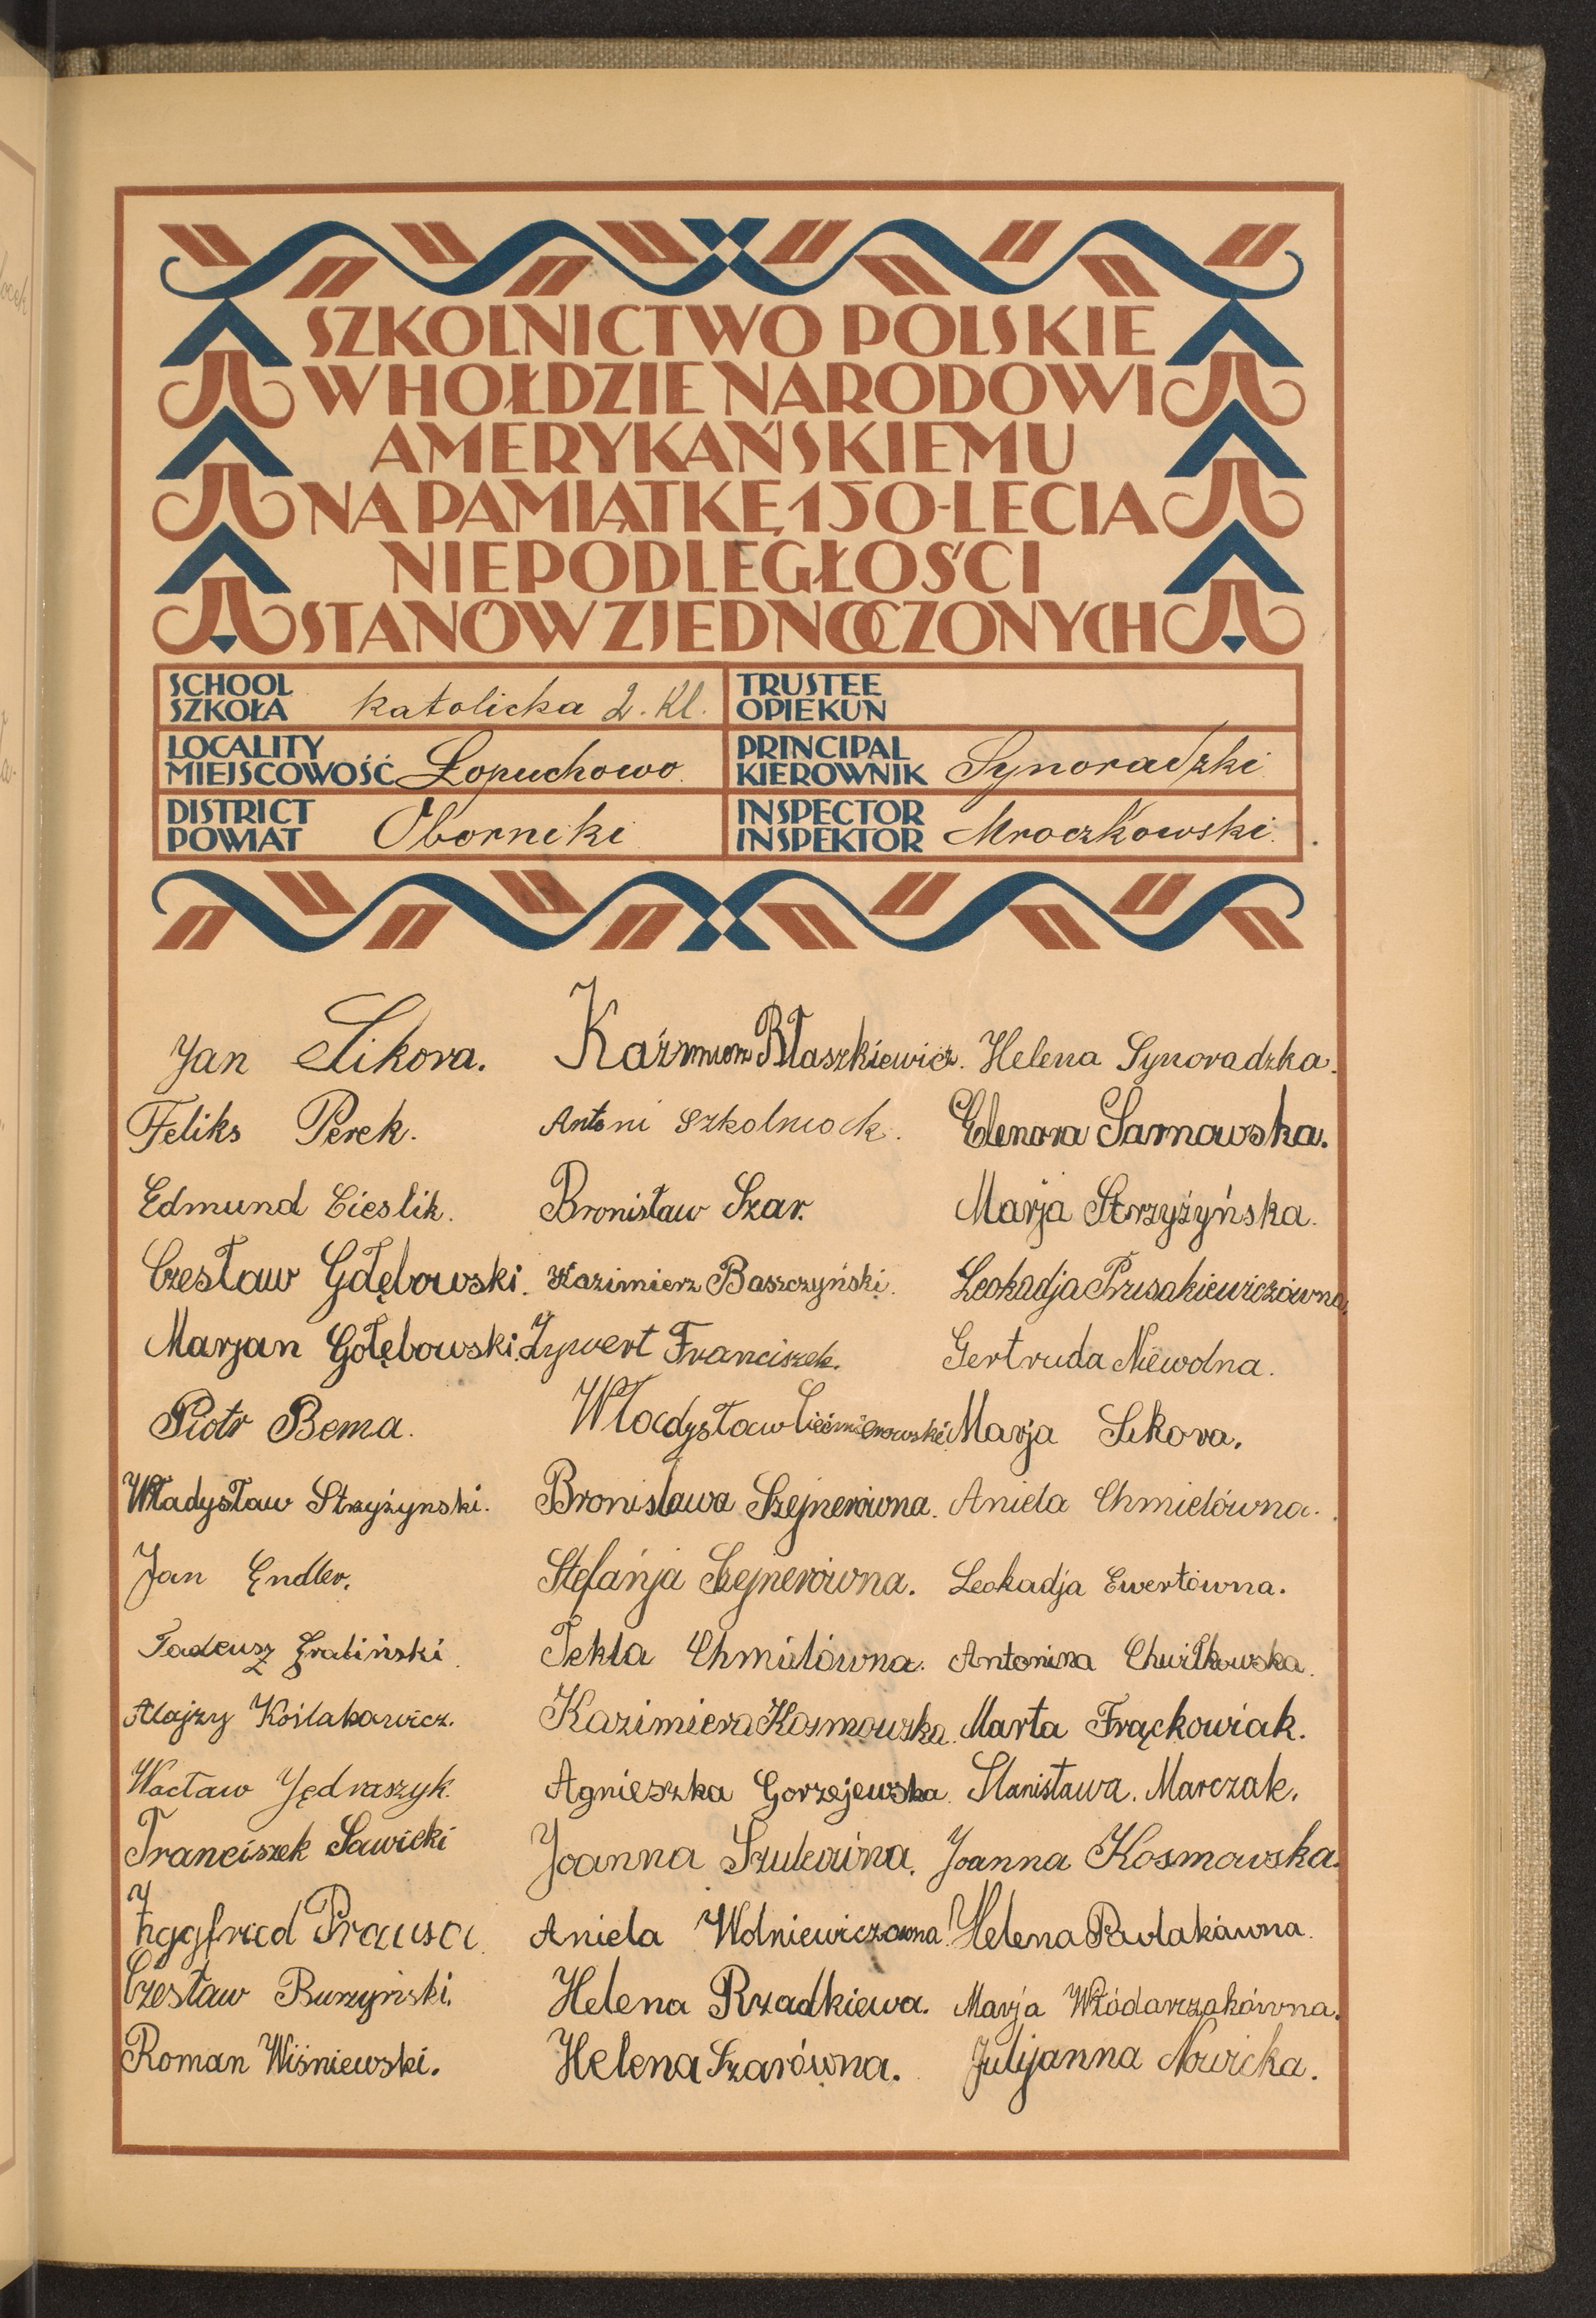 SZKOLNICTWO POLSKIE
W HOŁDZIE NARODOWI
AMERYKAŃSKIEMU
NA PAMIĄTKĘ 150-LECIA
NIEPODLEGŁOŚCI
STANÓW ZJEDNOCZONYCH
SCHOOL
SZKOŁA
katolicka 2. kl.
TRUSTEE
OPIEKUN
LOCALITY
MIEJSCOWOŚĆ
Łopuchowo
PRINCIPAL
KIEROWNIK
Synoradzki
DISTRICT
POWIAT
Oborniki
INSPECTOR
INSPEKTOR
Mroczkowski.
Jan Sikora.
Feliks Perek.
Edmund Cieslik.
Czesław Gołębowski.
Marjan Gołębowski.
Piotr Bema.
Władysław Strzyżynski.
Jan Endler.
Tadeusz
Alojzy
Wacław Jędraszyk.
Franciszek Sawicki
Prausa
Czesław Burzyński.
Roman Wiśniewski.
Błaszkiewicz.
Antoni
Bronisław Szar.
Kazimierz Baszczyński.
Zywert Franciszek.
Bronisława Szejnerówna.
Stefańja Szejnerówna.
Tekla
Kazimiera
Agnieszka Gorzejewska.
Joanna
Aniela
Helena Rzadkiewa.
Helena Szarówna.
Helena Synoradzka.
Elenora Sarnowska.
Marja Strzyżyńska.
Leokadja Prusakiewiczówna.
Gertruda Niewolna.
Marja Sikora.
Aniela Chmielówna.
Leokadja Ewertówna.
Antonina Chwiłkowska.
Marta Frąckowiak.
Stanisława. Marczak.
Joanna Kosmowska.
Helena Pawlakówna.
Marja Włódarczakówna.
Julijanna Nowicka.